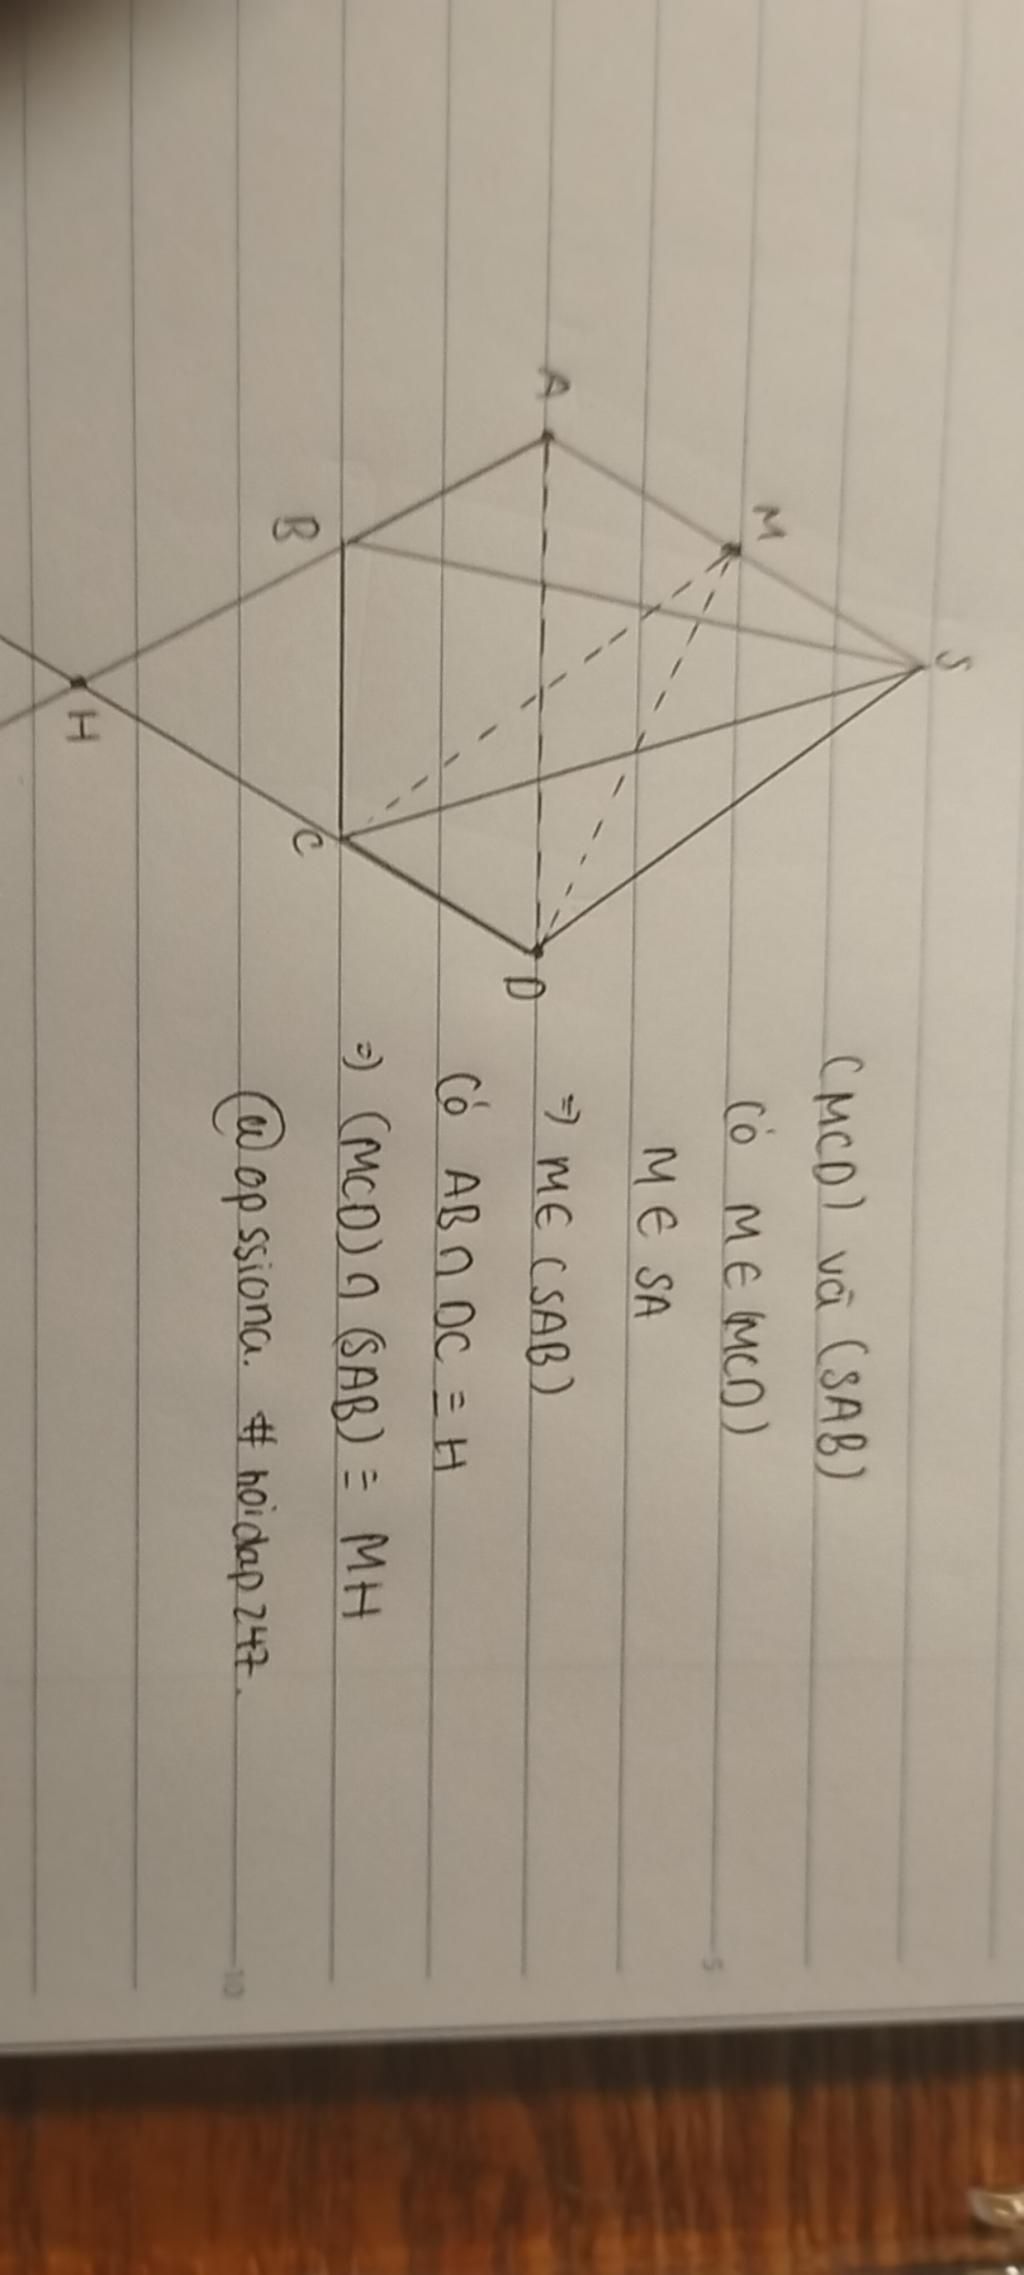 S
M
A
D
B
C
H
(MCD) và (SAB)
Có M ∈ (MCD)
M ∈ SA
=> M ∈ (SAB)
Có AB ∩ DC = H
=> (MCD) ∩ (SAB) = MH
@opssiona. # hoidap247.
5
10